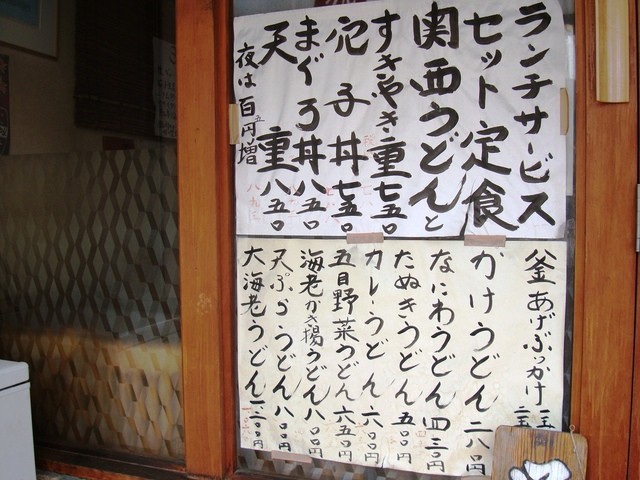 ランチサービス
セット定食
関西うどんと
すきやき重 七五〇
宛子丼 七五〇
まぐろ丼 八五〇
天重 八五〇
夜は百五円増
釜あげぶっかけ
かけうどん 二八〇円
なにわうどん 四三〇円
たぬきうどん 五〇〇円
カレーうどん 六〇〇円
五目野菜うどん 六五〇円
海老かき揚うどん 八〇〇円
天ぷらうどん 八〇〇円
大海老うどん 一、二〇〇円